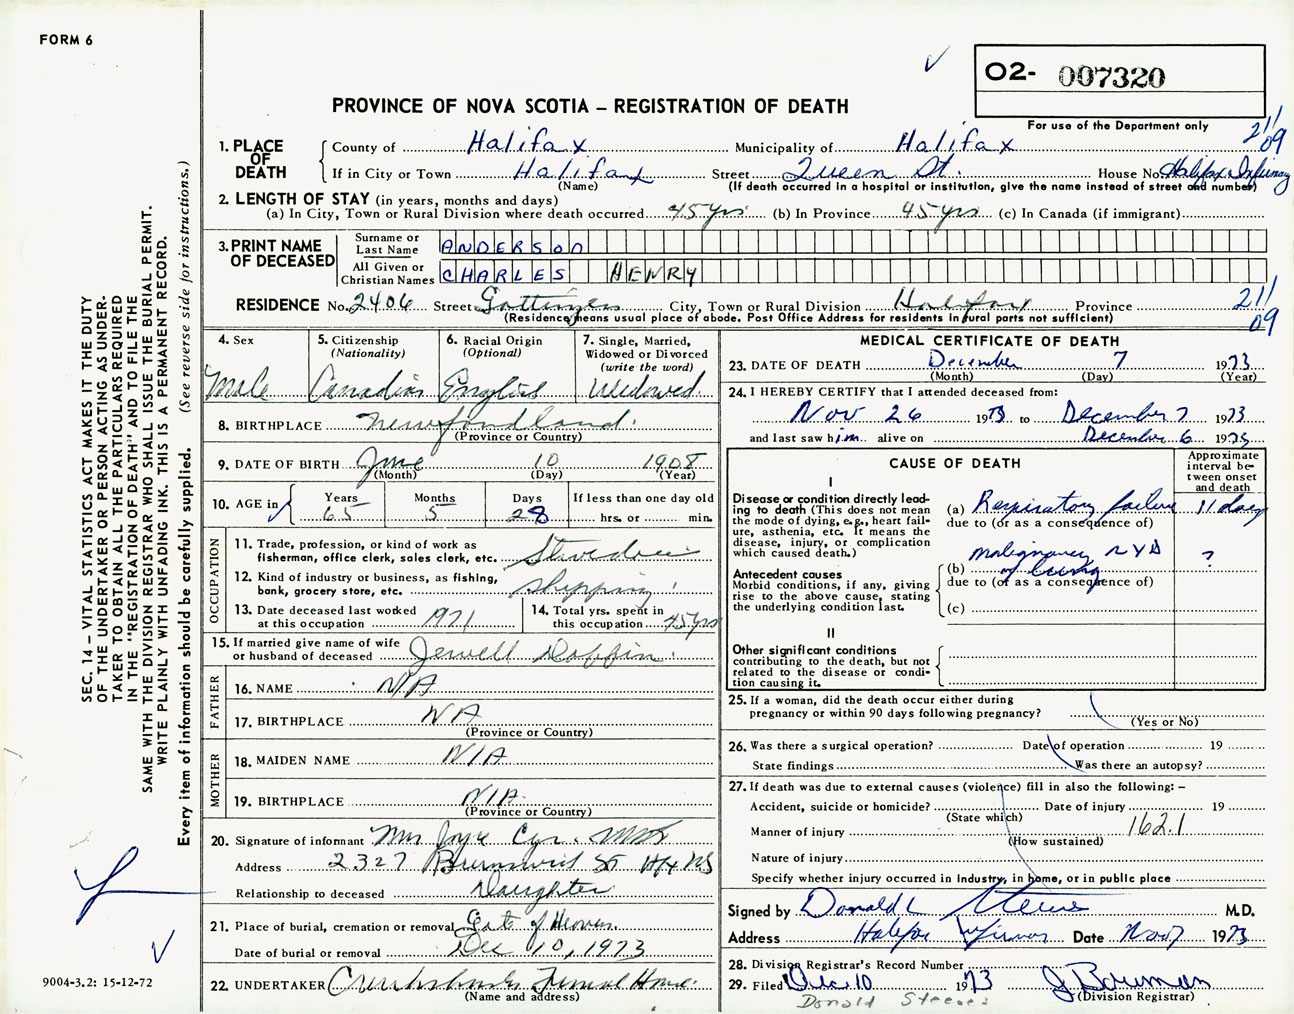 FORM 6
O2- 007320
PROVINCE OF NOVA SCOTIA – REGISTRATION OF DEATH
For use of the Department only
211
09
1. PLACE OF DEATH
County of Halifax Municipality of Halifax
If in City or Town Halifax Street Queen St. House No. Halifax Infirmary
(Name) (If death occurred in a hospital or institution, give the name instead of street and number)
2. LENGTH OF STAY (in years, months and days)
(a) In City, Town or Rural Division where death occurred 45 yrs (b) In Province 45 yrs (c) In Canada (if immigrant)
3. PRINT NAME OF DECEASED
Surname or Last Name ANDERSON
All Given or Christian Names CHARLES HENRY
RESIDENCE No. 2406 Street Gottingen City, Town or Rural Division Halifax Province 211
(Residence means usual place of abode. Post Office Address for residents in rural parts not sufficient) 09
4. Sex Male
5. Citizenship (Nationality) Canadian
6. Racial Origin (Optional) English
7. Single, Married, Widowed or Divorced (write the word) Widowed
8. BIRTHPLACE Newfoundland.
(Province or Country)
9. DATE OF BIRTH June 10 1908
(Month) (Day) (Year)
10. AGE in Years 65 Months 5 Days 28 If less than one day old hrs. or min.
OCCUPATION
11. Trade, profession, or kind of work as fisherman, office clerk, sales clerk, etc. Stevedore
12. Kind of industry or business, as fishing, bank, grocery store, etc. Shipping
13. Date deceased last worked at this occupation 1971
14. Total yrs. spent in this occupation 45 yrs
15. If married give name of wife or husband of deceased Jewell
FATHER
16. NAME N/A
17. BIRTHPLACE NA
(Province or Country)
MOTHER
18. MAIDEN NAME N/A
19. BIRTHPLACE N/A
(Province or Country)
20. Signature of informant Mrs Joyce Cyr.
Address 2327 Brunswick St Hfx NS
Relationship to deceased Daughter
21. Place of burial, cremation or removal Gate of Heaven
Date of burial or removal Dec 10, 1973
22. UNDERTAKER Cruikshanks Funeral Home
(Name and address)
MEDICAL CERTIFICATE OF DEATH
23. DATE OF DEATH December 7 1973
(Month) (Day) (Year)
24. I HEREBY CERTIFY that I attended deceased from:
Nov 26 1973 to December 7 1973
and last saw him alive on December 6 1973
CAUSE OF DEATH
Approximate interval between onset and death
I
Disease or condition directly leading to death (This does not mean the mode of dying, e.g., heart failure, asthenia, etc. It means the disease, injury, or complication which caused death.)
(a) Respiratory failure 11 days
due to (or as a consequence of)
Antecedent causes
Morbid conditions, if any, giving rise to the above cause, stating the underlying condition last.
(b) malignancy NYD of lung ?
due to (or as a consequence of)
(c)
II
Other significant conditions contributing to the death, but not related to the disease or condition causing it.
25. If a woman, did the death occur either during pregnancy or within 90 days following pregnancy?
(Yes or No)
26. Was there a surgical operation? Date of operation 19
State findings Was there an autopsy?
27. If death was due to external causes (violence) fill in also the following: –
Accident, suicide or homicide? Date of injury 19
(State which)
Manner of injury 162.1
(How sustained)
Nature of injury
Specify whether injury occurred in Industry, in home, or in public place
Signed by Donald L Steeves M.D.
Address Halifax Infirmary Date Nov 7 1973
28. Division Registrar's Record Number
29. Filed Dec 10 1973 J Bowman
(Division Registrar)
Donald Steeves
SEC. 14 – VITAL STATISTICS ACT MAKES IT THE DUTY
OF THE UNDERTAKER OR PERSON ACTING AS UNDER-
TAKER TO OBTAIN ALL THE PARTICULARS REQUIRED
IN THE "REGISTRATION OF DEATH" AND TO FILE THE
SAME WITH THE DIVISION REGISTRAR WHO SHALL ISSUE THE BURIAL PERMIT.
WRITE PLAINLY WITH UNFADING INK. THIS IS A PERMANENT RECORD.
Every item of information should be carefully supplied. (See reverse side for instructions.)
9004-3.2: 15-12-72